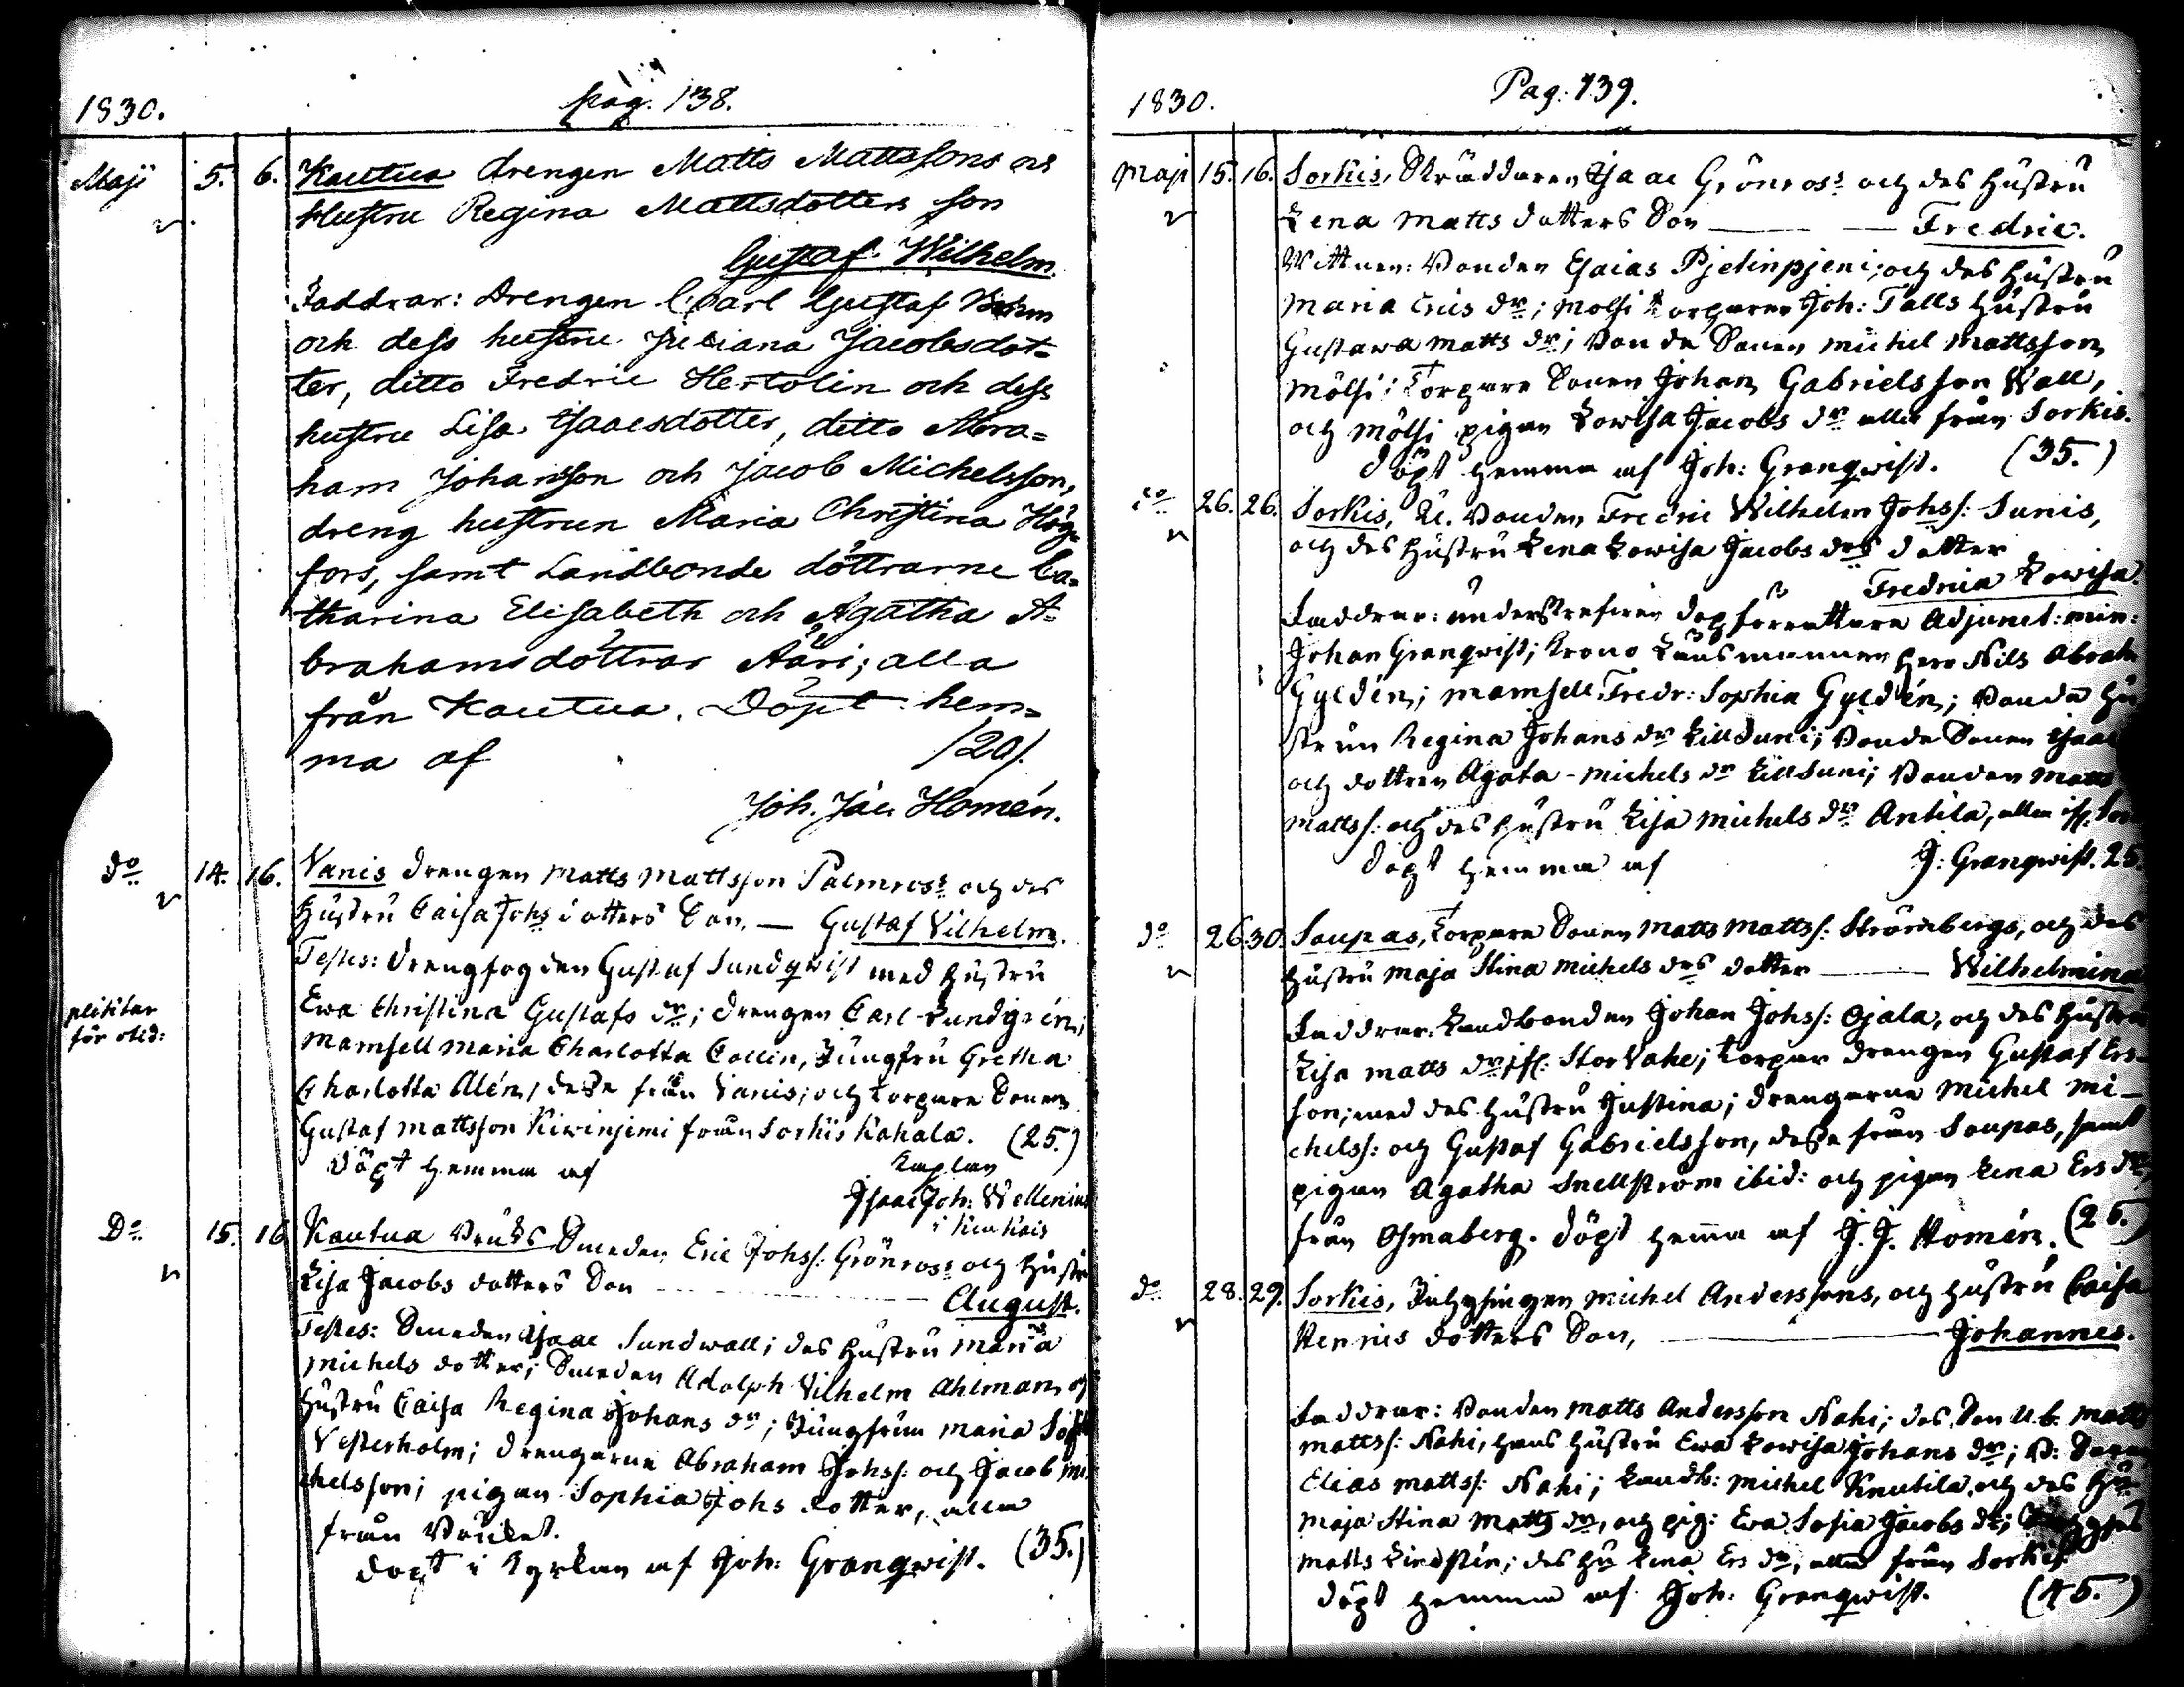 1830. pag. 138.
Maji 5. 6. Kautua drengen Matts Mattssons och
Hustru Regina Mattsdotters son
Gustaf Wilhelm.
Faddrar: Drengen Carl Gustaf
och dess hustru Juliana Jacobsdot=
ter, ditto Fredric Hertolin och dess
hustru Lisa Isaacsdotter, ditto Abra=
ham Johansson och Jacob Michelsson,
dreng hustrun Maria Christina Hög=
fors, samt Landbonde döttrarne Ca=
tharina Elisabeth och Agatha A=
brahamsdöttrar Ääri; alla
från Kautua. Döpt hem=
ma af /20/.
Joh. Jac. Homén.
do 14. 16. Vanis drengen Matts Mattsson Palmross och des
Hustru Caisa Johs dotters Son. — Gustaf Vilhelm.
Testes: Drengfogden Gustaf Sundqvist med Hustru
Ewa Christina Gustafs dr; drengen Carl Lundgrén;
Mamsell Maria Charlotta Collin, Jungfru Gretha
Charlotta Alén, dese från Vanis; och torpare Sonen
Gustaf Mattsson Kiwinjemi från Sorkis Kahala. (25.)
Döpt hemma af Kaplan
Isaac Joh: Wellenius
i Kiukais
Do 15. 16 Kautua Bruks Smeden Eric Johss: Grönross och Hustru
Lisa Jacobs dotters Son — August.
Testes: Smeden Isaac Sundwall; des Hustru Maria
Michels dotter; Smeden Adolph Vilhelm Ahlman, och
Hustru Caisa Regina Johans dr; Jungfrun Maria Sofia
Vesterholm; drengarne Abraham Johss: och Jacob Mi
chelsson; pigan Sophia Johs dotter, alla
från Bruket.
Döpt i Kyrkan af Joh: Granqwist. (35.)
1830. Pag: 139.
Maji 15. 16. Sorkis, Skräddaren Isaac Grönross och des Hustru
Lena Matts dotters Son — Fredric.
Wittnen: Bonden Esaias Pjelinpjeni; och des Hustru
Maria Erics dr; Mölsi torparen Joh: Talls Hustru
Gustawa Matts dr; Bonde Sonen Michel Mattsson
Mölsi; Torpare Sonen Johan Gabrielsson Wall,
och Mölsi pigan Lowisa Jacobs dr alla från Sorkis.
Döpt hemma af Joh: Granqwist. (35.)
do 26. 26. Sorkis, U. Bonden Fredric Wilhelm Johss: Sunis,
och des Hustru Lena Lowisa Jacobs drs dotter
Fredrica Lowisa.
Faddrar: Adjunct: min:
Johan Granqwist; Krono Länsmannen Herr Nils Abrah
Gyldén; Mamsell Fredr: Sophia Gyldén; Bonde Hu
strun Regina Johans dr LillSuni; Bonde Sonen Isaac
och dottren Agata Michels dr LillSuni; Bonden Matts
Mattss: och des Hustru Lisa Michels dr Antila, alla
Döpt hemma af J: Granqwist. 25
do 26. 30. Saupas, Torpare Sonen Matts Mattss: Strömbergs, och des
Hustru Maja Stina Michels drs dotter — Wilhelmina
Faddrar: Landbonden Johan Johss: Ojala, och des Hustru
Lisa Matts dr StorVahe; torpar drengen Gustaf Ers-
son; med des Hustru Justina; drengarne Michel Mi-
chelss: och Gustaf Gabrielsson, dese från Saupas, samt
pigan Agatha Snellström ibid: och pigan Lena Ers dr,
från Osmaberg. Döpt hemma af J. J. Homén. (25.)
do 28. 29. Sorkis, Inhysingen Michel Anderssons, och Hustru Caisa
Henrics dotters Son, — Johannes.
Faddrar: Bonden Matts Andersson Nahi; des Son U. b. Matts
Mattss: Nahi, hans Hustru Ewa Lowisa Johans dr; B: Sonen
Elias Mattss: Nahi; Landb: Michel Knutila, och des Hu
Maja Stina Matts dr, och pig: Ewa Sofia Jacobs dr;
Matts Lindstén; des Hu Lena Ers dr, alla från Sorkis.
Döpt hemma af Joh: Granqwist. (45.)